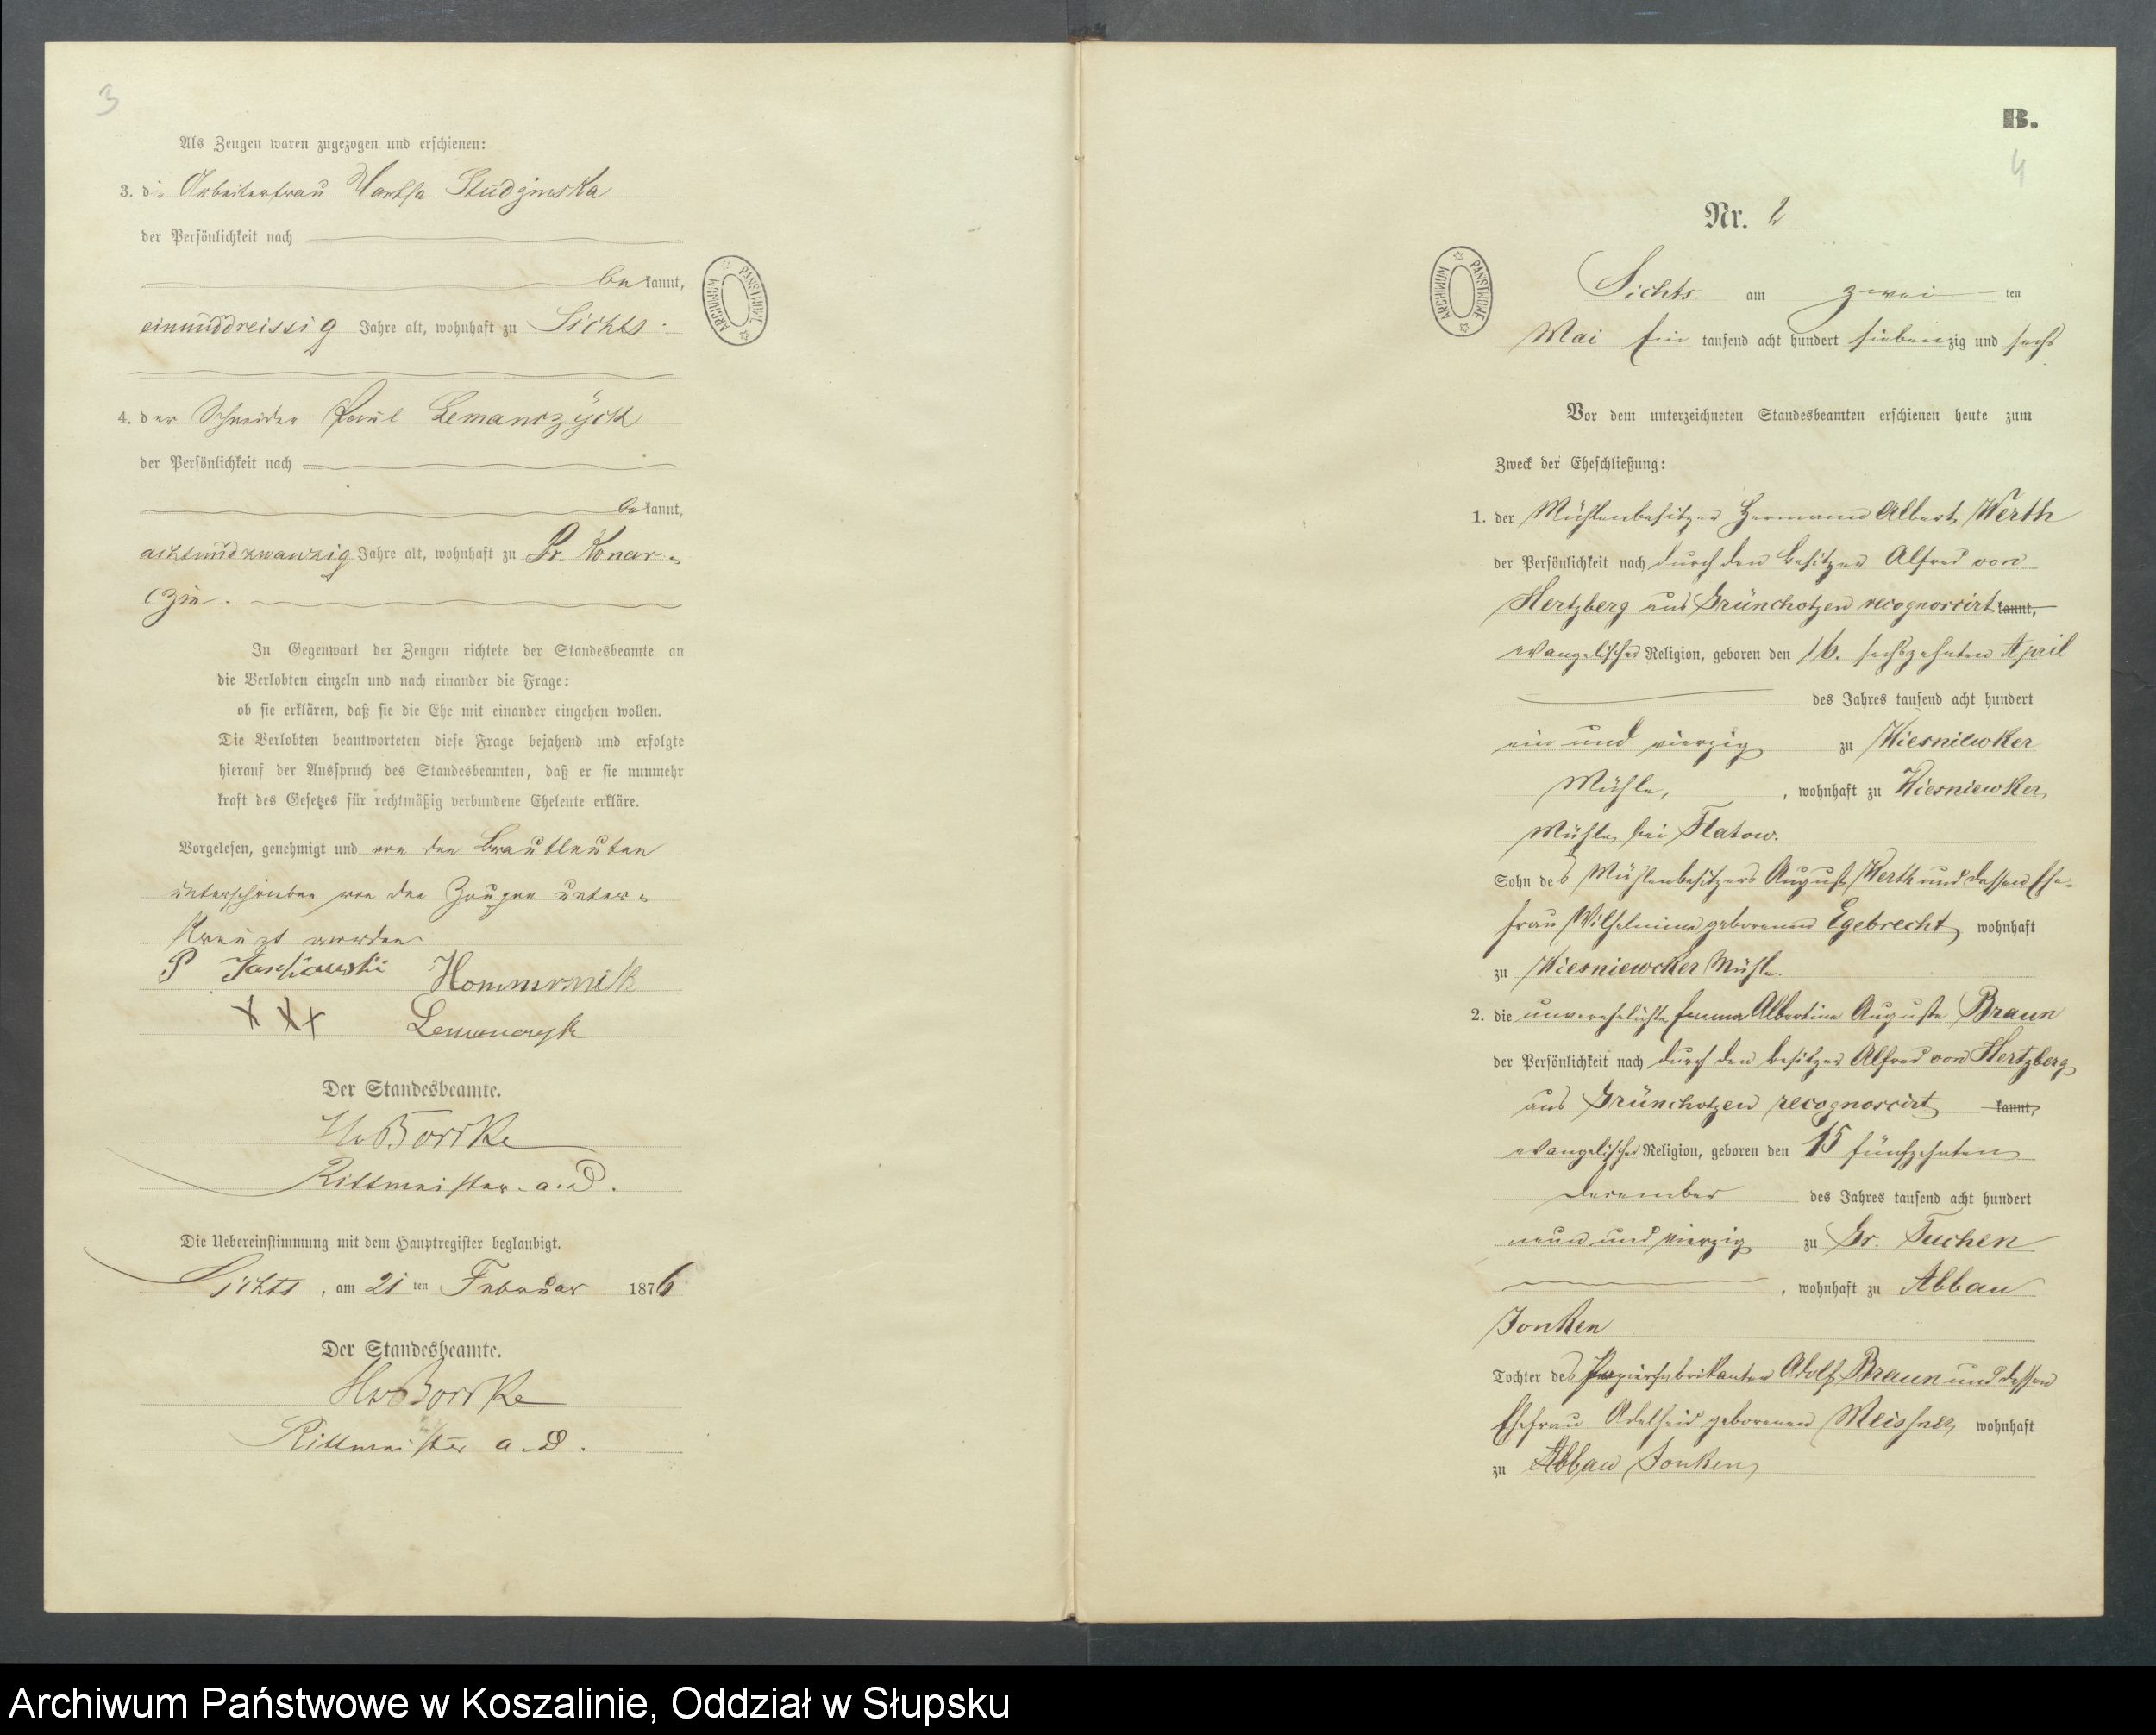 3
Als Zeugen waren zugezogen und erschienen:
3. die Arbeiterfrau Martha Studzinska
der Persönlichkeit nach
bekannt,
einunddreissig Jahre alt, wohnhaft zu Sichts.
4. der Schneider Paul Lemanczÿck
der Persönlichkeit nach
bekannt,
achtundzwanzig Jahre alt, wohnhaft zu Pr. Konar-
czin.
In Gegenwart der Zeugen richtete der Standesbeamte an
die Verlobten einzeln und nach einander die Frage:
ob sie erklären, daß sie die Ehe mit einander eingehen wollen.
Die Verlobten beantworteten diese Frage bejahend und erfolgte
hierauf der Ausspruch des Standesbeamten, daß er sie nunmehr
kraft des Gesetzes für rechtmäßig verbundene Eheleute erkläre.
Vorgelesen, genehmigt und von den Brautleuten
unterschrieben von den Zeugen unter-
kreuzt worden
P Jaschewski
XXX Lemanczyk
Der Standesbeamte.
HvBorcke
Rittmeister a.D.
Die Uebereinstimmung mit dem Hauptregister beglaubigt.
Sichts, am 21 ten Februar 1876
Der Standesbeamte.
HvBorcke
Rittmeister a.D.
ARCHIWUM PAŃSTWOWE
B.
4
Nr. 2
ARCHIWUM PAŃSTWOWE
Sichts. am zwei ten
Mai Ein tausend acht hundert siebenzig und sechs
Vor dem unterzeichneten Standesbeamten erschienen heute zum
Zweck der Eheschließung:
1. der Mühlenbesitzer Hermann Albert Werth
der Persönlichkeit nach durch den Besitzer Alfred von
Hertzberg aus Grünchotzen recognoscirt kannt,
evangelischer Religion, geboren den 16. sechszehnten April
des Jahres tausend acht hundert
ein und vierzig zu Wiesniewker
Mühle, , wohnhaft zu Wiesniewker
Mühle bei Flatow.
Sohn des Mühlenbesitzers August Werth und dessen Ehe-
frau Wilhelmine geborenen Egebrecht wohnhaft
zu Wiesniewcker Mühle.
2. die unverehelichte Emma Albertine Auguste Braun
der Persönlichkeit nach durch den Besitzer Alfred von Hertzberg
aus Grünchotzen recognoscirt kannt,
evangelischer Religion, geboren den 15 fünfzehnten
December des Jahres tausend acht hundert
neun und vierzig zu Gr. Tuchen
, wohnhaft zu Abbau
Jonken
Tochter des Papierfabrikanten Adolf Braun und dessen
Ehefrau Adelheid geborenen Meissner, wohnhaft
zu Abbau Jonken
Archiwum Państwowe w Koszalinie, Oddział w Słupsku